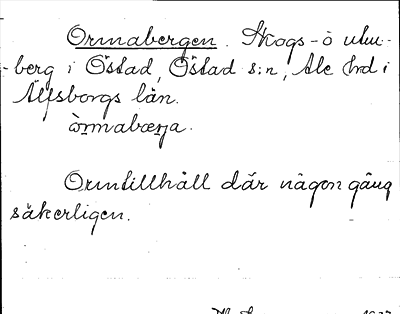 Ormabergen. Skogs- o utm-
berg i Östad, Östad s:n, Ale hd i
Älfsborgs län.
òrmabærja.
Ormtillhåll där någon gång
säkerligen.